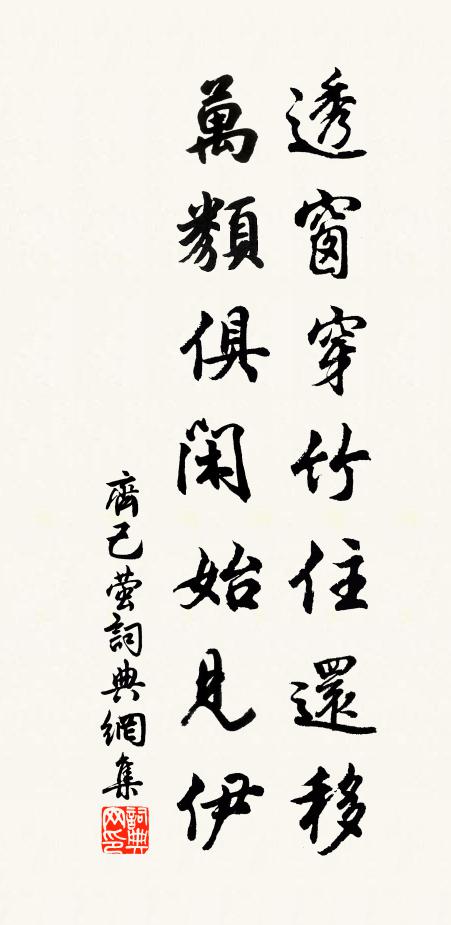 透窗穿竹住還移
萬類俱閑始見伊
齊己螢詞典網集
詞典网印